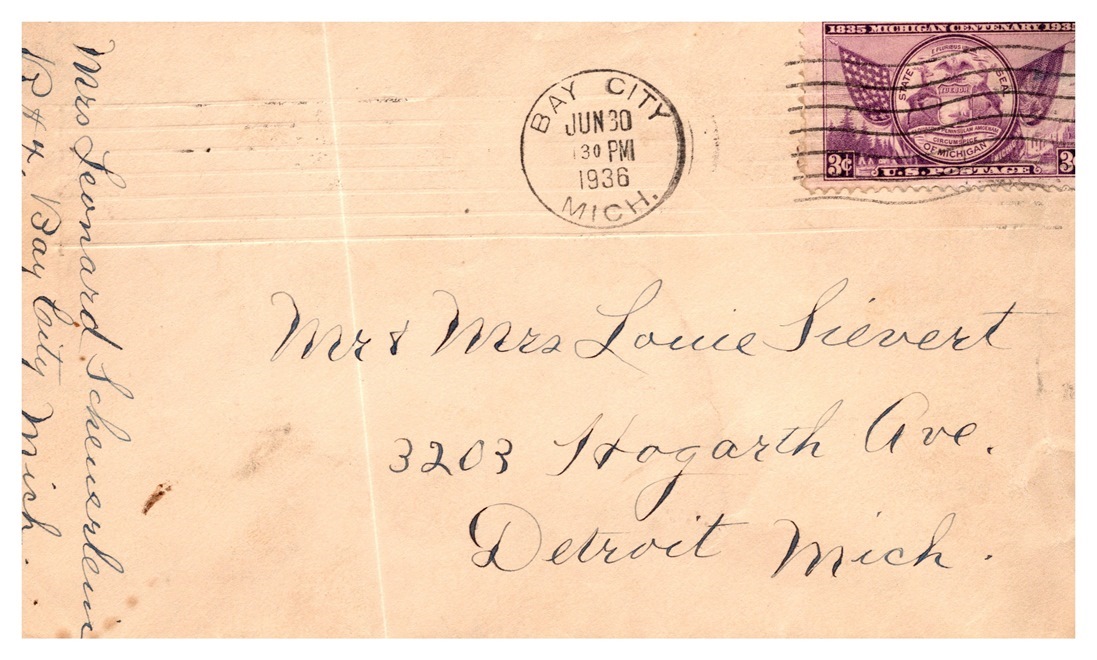 Mrs Leonard Scheuerlein
R#4, Bay City Mich.
BAY CITY
JUN 30
130 PM
1936
MICH.
1835 MICHIGAN CENTENARY 1935
E PLURIBUS
STATE SEAL
TUEBOR
OF MICHIGAN
3¢ U.S. POSTAGE 3
Mr & Mrs Louie Sievert
3203 Hogarth Ave.
Detroit Mich.